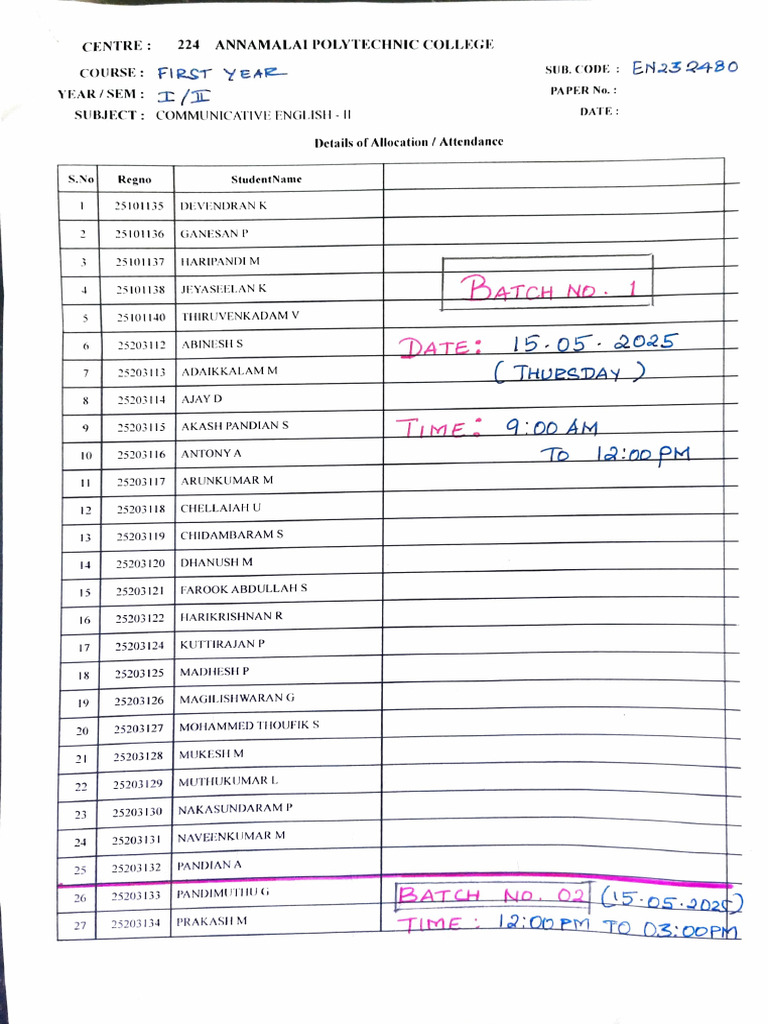 CENTRE : 224 ANNAMALAI POLYTECHNIC COLLEGE
COURSE : FIRST YEAR SUB. CODE : EN232480
YEAR / SEM : I/II PAPER No. :
SUBJECT : COMMUNICATIVE ENGLISH - II DATE :
Details of Allocation / Attendance
S.No Regno StudentName
1 25101135 DEVENDRAN K
2 25101136 GANESAN P
3 25101137 HARIPANDI M
4 25101138 JEYASEELAN K BATCH NO. 1
5 25101140 THIRUVENKADAM V
6 25203112 ABINESH S DATE: 15.05.2025
7 25203113 ADAIKKALAM M (THURSDAY)
8 25203114 AJAY D
9 25203115 AKASH PANDIAN S TIME: 9:00 AM
10 25203116 ANTONY A TO 12:00 PM
11 25203117 ARUNKUMAR M
12 25203118 CHELLAIAH U
13 25203119 CHIDAMBARAM S
14 25203120 DHANUSH M
15 25203121 FAROOK ABDULLAH S
16 25203122 HARIKRISHNAN R
17 25203124 KUTTIRAJAN P
18 25203125 MADHESH P
19 25203126 MAGILISHWARAN G
20 25203127 MOHAMMED THOUFIK S
21 25203128 MUKESH M
22 25203129 MUTHUKUMAR L
23 25203130 NAKASUNDARAM P
24 25203131 NAVEENKUMAR M
25 25203132 PANDIAN A
26 25203133 PANDIMUTHU G BATCH NO. 02 (15.05.2025)
27 25203134 PRAKASH M TIME: 12:00PM TO 03:00PM